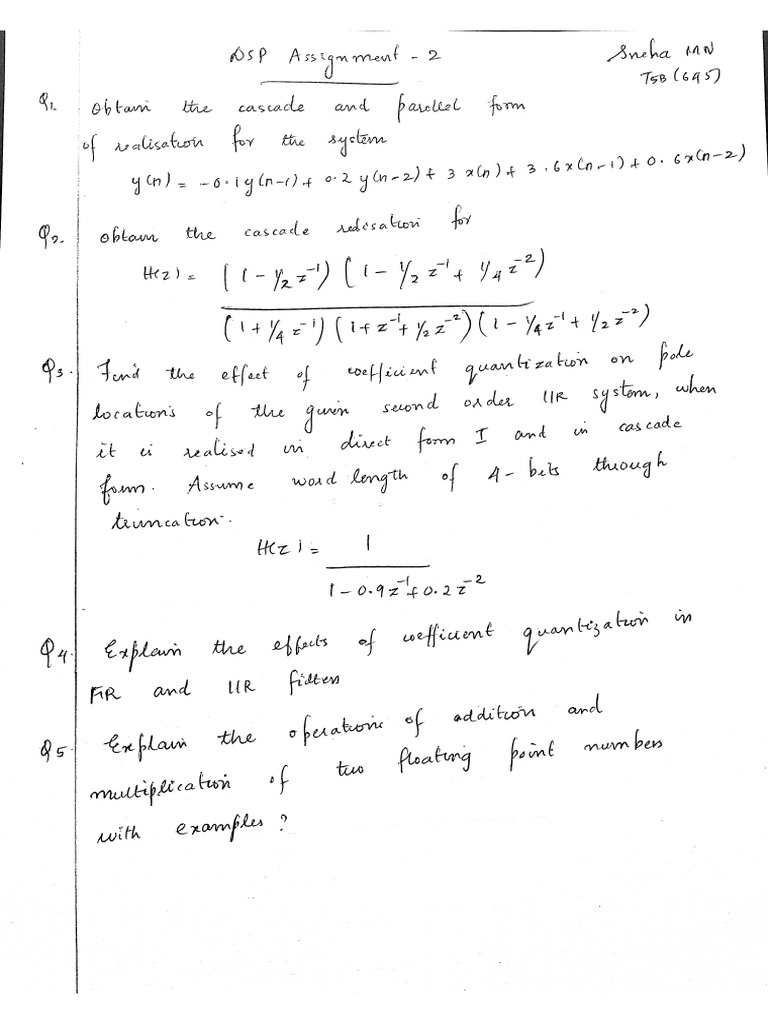 DSP Assignment - 2
Sneha MN
T5B (695)
Q1. Obtain the cascade and parallel form
of realisation for the system
y(n) = -0.1y(n-1) + 0.2 y(n-2) + 3 x(n) + 3.6x(n-1) + 0.6x(n-2)
Q2. Obtain the cascade realisation for
H(z) = (1 - 1/2 z⁻¹) (1 - 1/2 z⁻¹ + 1/4 z⁻²)
(1 + 1/4 z⁻¹) (1 + z⁻¹ + 1/2 z⁻²) (1 - 1/4 z⁻¹ + 1/2 z⁻²)
Q3. Find the effect of coefficient quantization on pole
locations of the given second order IIR system, when
it is realised in direct form I and in cascade
form. Assume word length of 4-bits through
truncation.
H(z) = 1
1 - 0.9z⁻¹ + 0.2z⁻²
Q4. Explain the effects of coefficient quantization in
FIR and IIR filters
Q5. Explain the operations of addition and
multiplication of two floating point numbers
with examples?